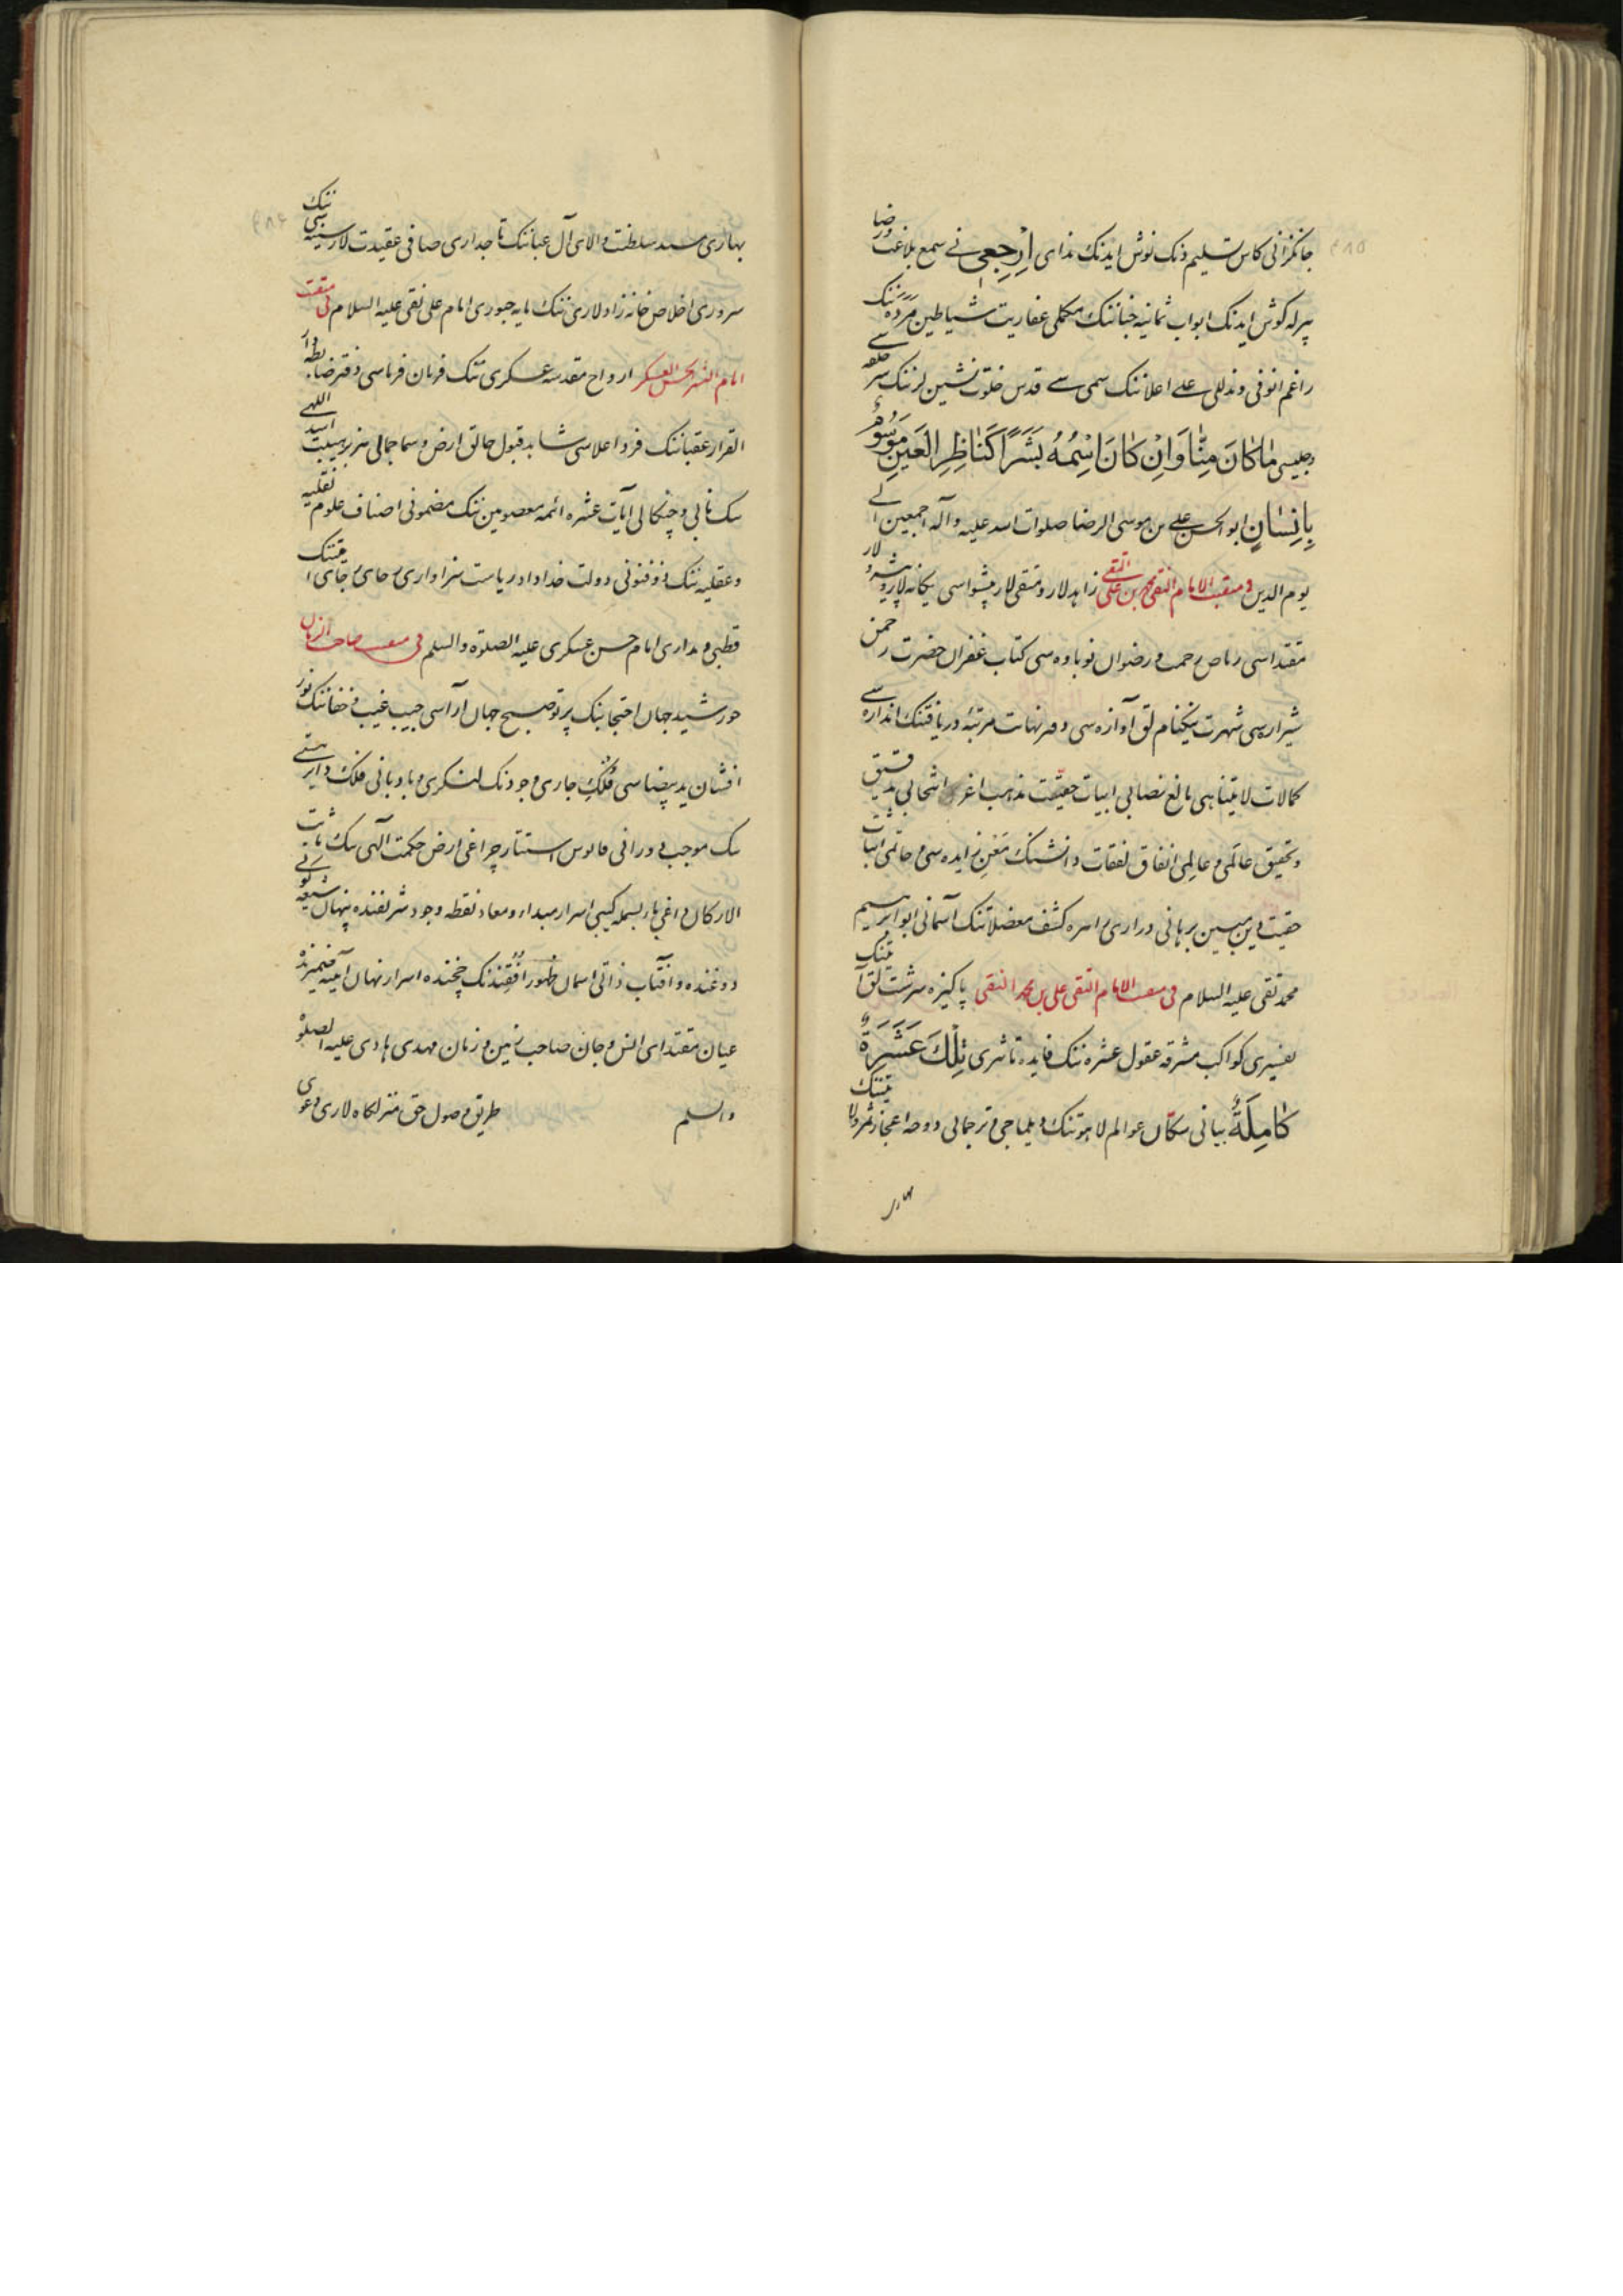 جانگزانی کاس تسلیم دنک نوش ایدنک ندای اِرْجِعِی نے سمع بلاغت و رضا
بیرله کوش ایدنک ابواب ثمانیه جناننک مکملی عفاریت شیاطین مَرَدَه ننک
راغم انوفی و نذللی علے اعلاننک سمی سے قدس خلوت نشین لرننک سر حلقه سے
و جلیسی مٰاکٰانَ مِنّٰا وَاِنْ کٰانَ اسْمُهُ بَشَرًا کَنٰاظِرِ الْعَیْنِ مَوْسُوْمٌ
بِاِنِسٰانٍ ابو الحسن علے بن موسی الرضا صلوات الله علیه و آله اجمعین الے
یوم الدین فی منقبت الامام التقی محمد بن علی التقی زاهد لار و متقی لار پیشواسی یکانه لار و پیشرو لار
مقتداسی ریاض رحمت و رضوان نوباوه سی کتاب غفران حضرت رحمن
شیرازه سی شهرت نیکنام لق آوازه سی دهر نهایت مرتبهٔ دریافتنک اندازه سے
کمالات لایتناهی بالغ نصابی ابیات حقیقت مذهب اغر انتخابی تدقیق
و تحقیق عالمی و عالِمی انفاق نفقات دانشنک معن زایده سی و حاتمی اثبات
حقیت دین مبین برهانی دراری اسره کشف معضلاتنک آسمانی ابو ابراهیم
محمد تقی علیه السلام فی منقبت الامام النقی علی بن محمد النقی پاکیزه سرشت لق آیتنک
تفسیری کواکب مشرقه عقول عشره ننک فایده تاثیری تِلْکَ عَشَرَةٌ
کٰامِلَةٌ بیانی سکّان عوالم لاهوتنک دیلماجی و ترجمانی دوحه اعجاز ثمره ولایتنک
بهاری
بهاری مسند سلطنت والای آل عباننک تاجداری صافی عقیدت لار سینه سی ننک
سروری اخلاص خانه زاد لاری ننک مایه حبوری امام علی نقی علیه السلام فی منقبت
امام الحسن العسکر ارواح مقدسه عسکری ننک فرمان فرماسی دفتر ضابطه دار
القرار عقباننک فرد اعلاسی شاهد قبول خالق ارض و سما جمالی هژبر هیبت اسد اللهی
ننک نابی و چنکالی آیات عشره ائمه معصومین ننک مضمونی اصناف علوم نقلیه
و عقلیه ننک ذوفنونی دولت خداداد ریاست سزاواری رحای رجای امتنک
قطبی و مداری امام حسن عسکری علیه الصلوة والسلم فی منقبت صاحب الزمان
خورشید جهان احتجابنک پرتو صبح جهان آراسی جیب غیب و خفاننک نور
افشان ید بیضاسی فُلْکِ جاری وجودنک لنکری و بادبانی فلک دایر هستی
ننک موجب دورانی فانوس استتار چراغی ارض حکمت الهی ننک ثابت
الارکان داغی باء بسمله کیبی اسرار مبداء و معاد نقطه وجود شریفنده پنهان شیعه لر کونی
دوغنده و آفتاب ذاتی اسمان ظهور افقندنک چخنده اسرار نهان آینه ضمیرنده
عیان مقتدای انس و جان صاحب زمین و زمان مهدی هادی علیه الصلوة
والسلم طریق وصول حق منزلکاه لاری دعوی